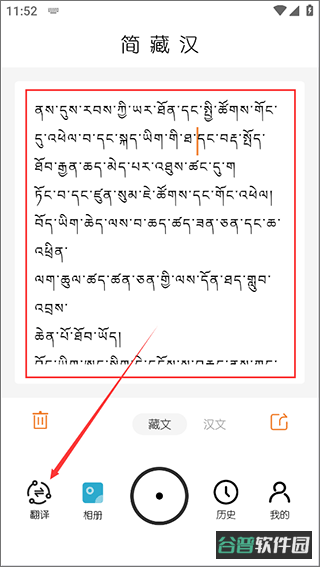 11:52
简藏汉
ནས་དུས་རབས་ཀྱི་ཡར་ཐོན་དང་སྤྱི་ཚོགས་གོང་
དུ་འཕེལ་བ་དང་སྐད་ཡིག་གི་ཐ་དང་བརྡ་སྤྲོད་
ཐོབ་རྒྱན་ཆད་མེད་པར་འཐུས་ཚང་དུ་ག
ཏོང་བ་དང་ཛུན་སུམ་ཇེ་ཚོགས་དང་གོང་འཕེལ།
བོད་ཡིག་ཆེད་ལས་བ་ཆད་ཚད་ཟན་ཅན་དང་ཆ་
འཕྲིན་
ལག་རྩལ་ཚད་ཚན་ཅན་གྱི་ལས་དོན་ཐད་གྲུབ་
འབྲས་
ཆེན་པོ་ཐོབ་ཡོད།
藏文
汉文
翻译
相册
历史
我的
谷普软件园